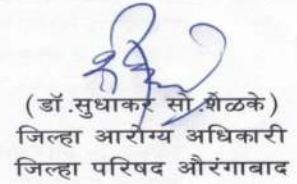 (डॉ.सुधाकर सो.शेळके)
जिल्हा आरोग्य अधिकारी
जिल्हा परिषद औरंगाबाद